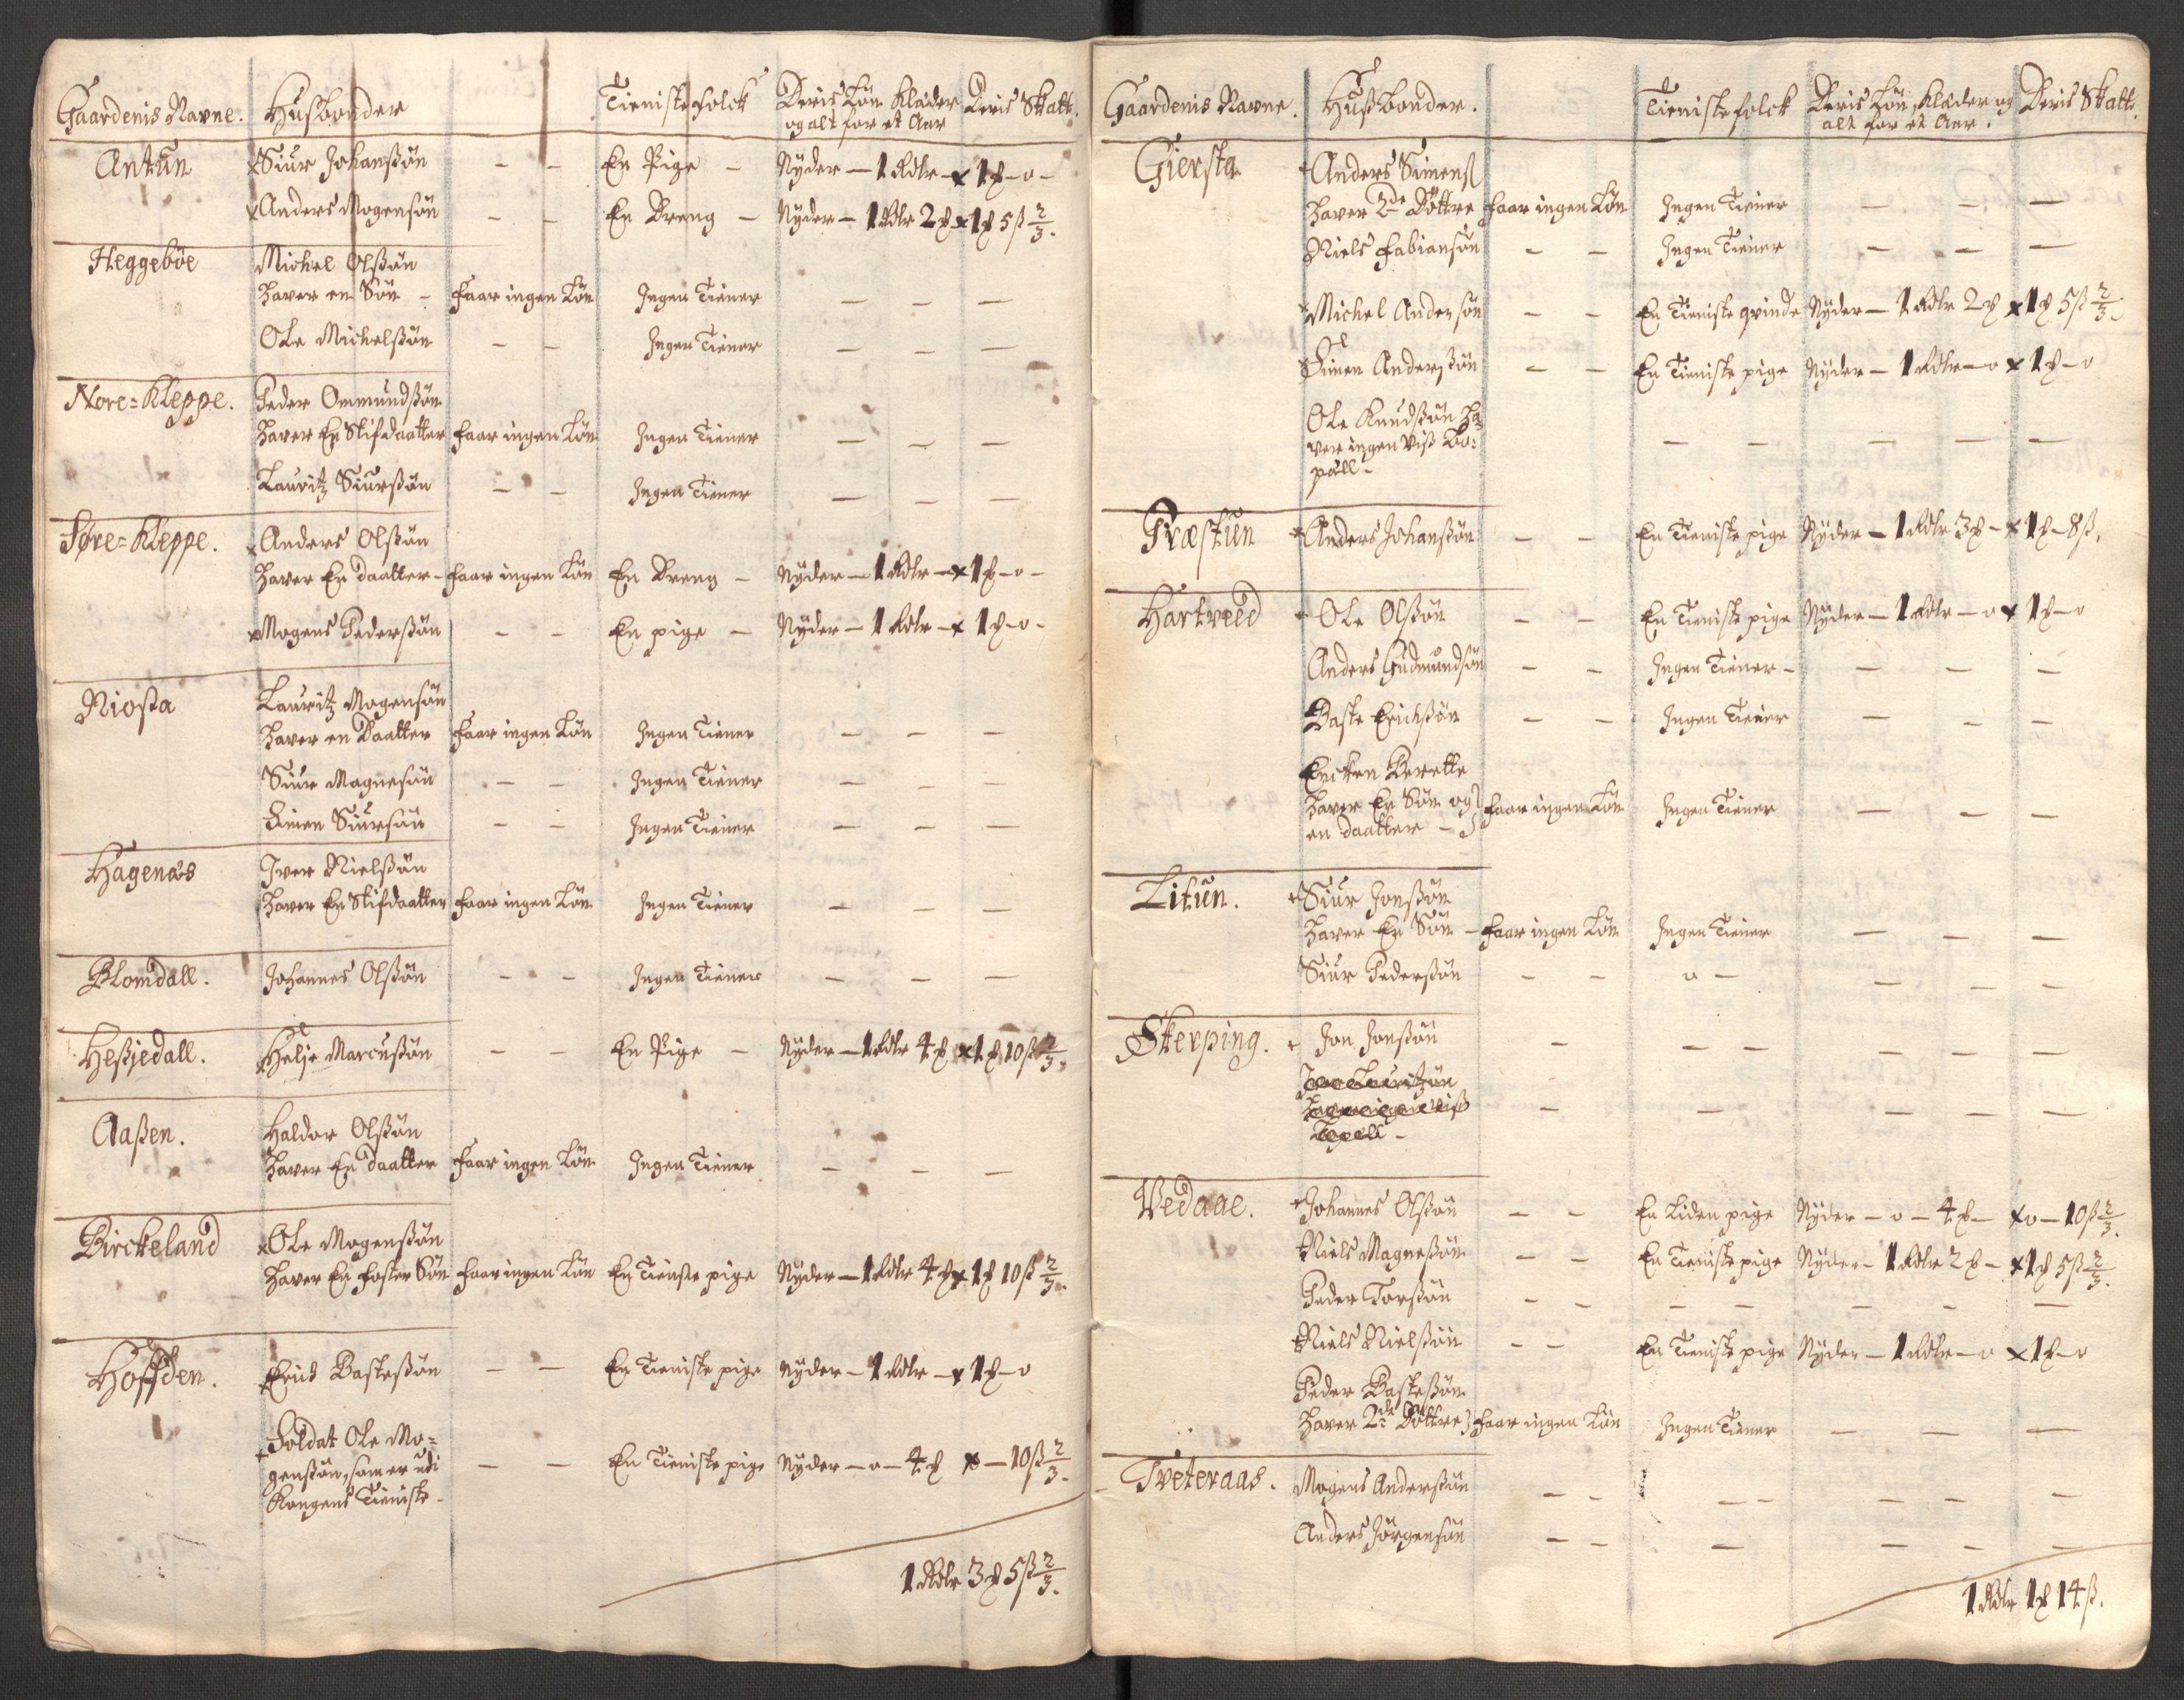 Gaardenis Navne. Husbonder Tieniste folck Deris Løn Klæder Deris Skatt.
og alt for et Aar
Antun Siur Johanßøn - - En Pige - Nyder - 1 Rdlr - x 1 ꝟ - o -
Anders Mogensøn - - En Dreng - Nyder - 1 Rdlr 2 ꝟ x 1 ꝟ 5 ß 2/3.
Heggebøe Michel Olßøn
haver en Søn - faar ingen Løn Ingen Tiener - - -
Ole Michelßøn - - Ingen Tiener - - -
Nore=Kleppe. Peder Ommundßøn
haver En Stifdaatter faar ingen Løn Ingen Tiener - - -
Lauritz Siurßøn - - Ingen Tiener - - -
Søre=Kleppe. x Anders Olßøn
haver En daatter - faar ingen Løn En Dreng - Nyder - 1 Rdlr - x 1 ꝟ - o -
x Mogens Pederßøn - - En pige - Nyder - 1 Rdlr - x 1 ꝟ - o -
Niosta Lauritz Mogensøn
haver en Daatter faar ingen Løn Ingen Tiener - - -
Siur Magnesøn - - Ingen Tiener - - -
Simen Siursøn - - Ingen Tiener - - -
Hagenæs Iver Nielßøn
haver En Stifdaatter faar ingen Løn Ingen Tiener - - -
Blomdall. Johannes Olßøn - - Ingen Tiener - - -
Heßjedall. x Helje Marcußøn - - En Pige - Nyder - 1 Rdlr 4 ꝟ x 1 ꝟ 10 ß 2/3.
Aaßen. Haldor Olßøn
haver En daatter faar ingen Løn Ingen Tiener - - -
Birckeland x Ole Mogenßøn
haver En foster Søn faar ingen Løn En Tieniste pige Nyder - 1 Rdlr 4 ꝟ x 1 ꝟ 10 ß 2/3.
Hoffden. x Erich Basteßøn - - En Tieniste pige Nyder - 1 Rdlr - x 1 ꝟ - o
Soldat Ole Mo=
+ genßøn, som er udi - - En Tieniste pige Nyder - o - 4 ꝟ x - 10 ß 2/3.
Kongens Tieniste -
1 Rdlr 3 ꝟ 5 ß 2/3.
Gaardenis Navne. Hußbonder. Tieniste folck Deris Løn, Klæder og Deris Skatt.
alt for et Aar.
Giersta + Anders Simensß
haver 2de Døttre faar ingen Løn Ingen Tiener - - -
Niels Fabiansøn - - Ingen Tiener - - -
x Michel Andersøn - - En Tieniste qvinde Nyder - 1 Rdlr 2 ꝟ x 1 ꝟ 5 ß 2/3.
x Simen Anderßøn - - En Tieniste pige Nyder - 1 Rdlr - o x 1 ꝟ - o
Ole Knudßøn ha=
ver ingen viß Bo= - - - - -
pæll -
Præstun x Anders Johanßøn - - En Tieniste pige Nyder - 1 Rdlr 3 ꝟ - x 1 ꝟ - 8 ß.
Hartveed + Ole Olßøn - - En Tieniste pige Nyder - 1 Rdlr - o x 1 ꝟ - o
Anders Gudmundsøn - - Ingen Tiener - - - -
Baste Erichßøn - - Ingen Tiener - - -
Encken Berette
haver En Søn og } faar ingen Løn Ingen Tiener - - -
en daatter -
Litun. + Siur Jonßøn
haver En Søn - faar ingen Løn Ingen Tiener - - -
Siur Pederßøn - - o - - - -
Skerping. + Jon Jonßøn - - - - - -
- - - - -
Vedaae. + Johannes Olßøn - - En Liden pige Nyder - o - 4 ꝟ - x o - 10 ß 2/3.
+ Niels Magneßøn - - En Tieniste pige Nyder - 1 Rdlr 2 ꝟ - x 1 ꝟ 5 ß 2/3.
Peder Torßøn - - - - - - -
+ Niels Nielßøn - - En Tieniste pige Nyder - 1 Rdlr - o x 1 ꝟ - o
Peder Basteßøn
haver 2de Døttre } faar ingen Løn Ingen Tiener - - -
Tveteraas. Mogens Anderßøn - - - - - - -
Anders Jørgensøn - - - - - -
1 Rdlr 1 ꝟ 14 ß.